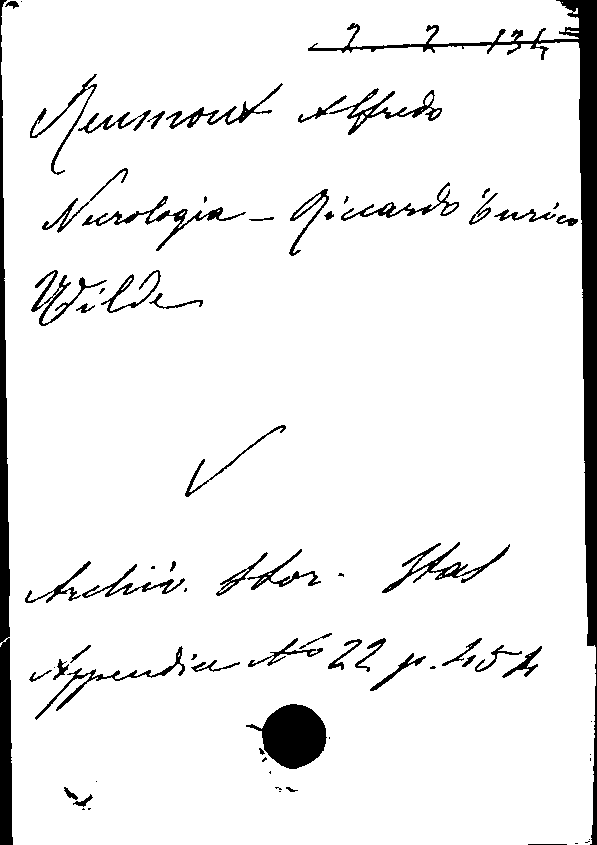 2. 2. 134
Reumont Alfredo
Necrologia – Riccardo Enrico
Wilde
Archiv. Stor. Ital
Appendice No 22 p. 454